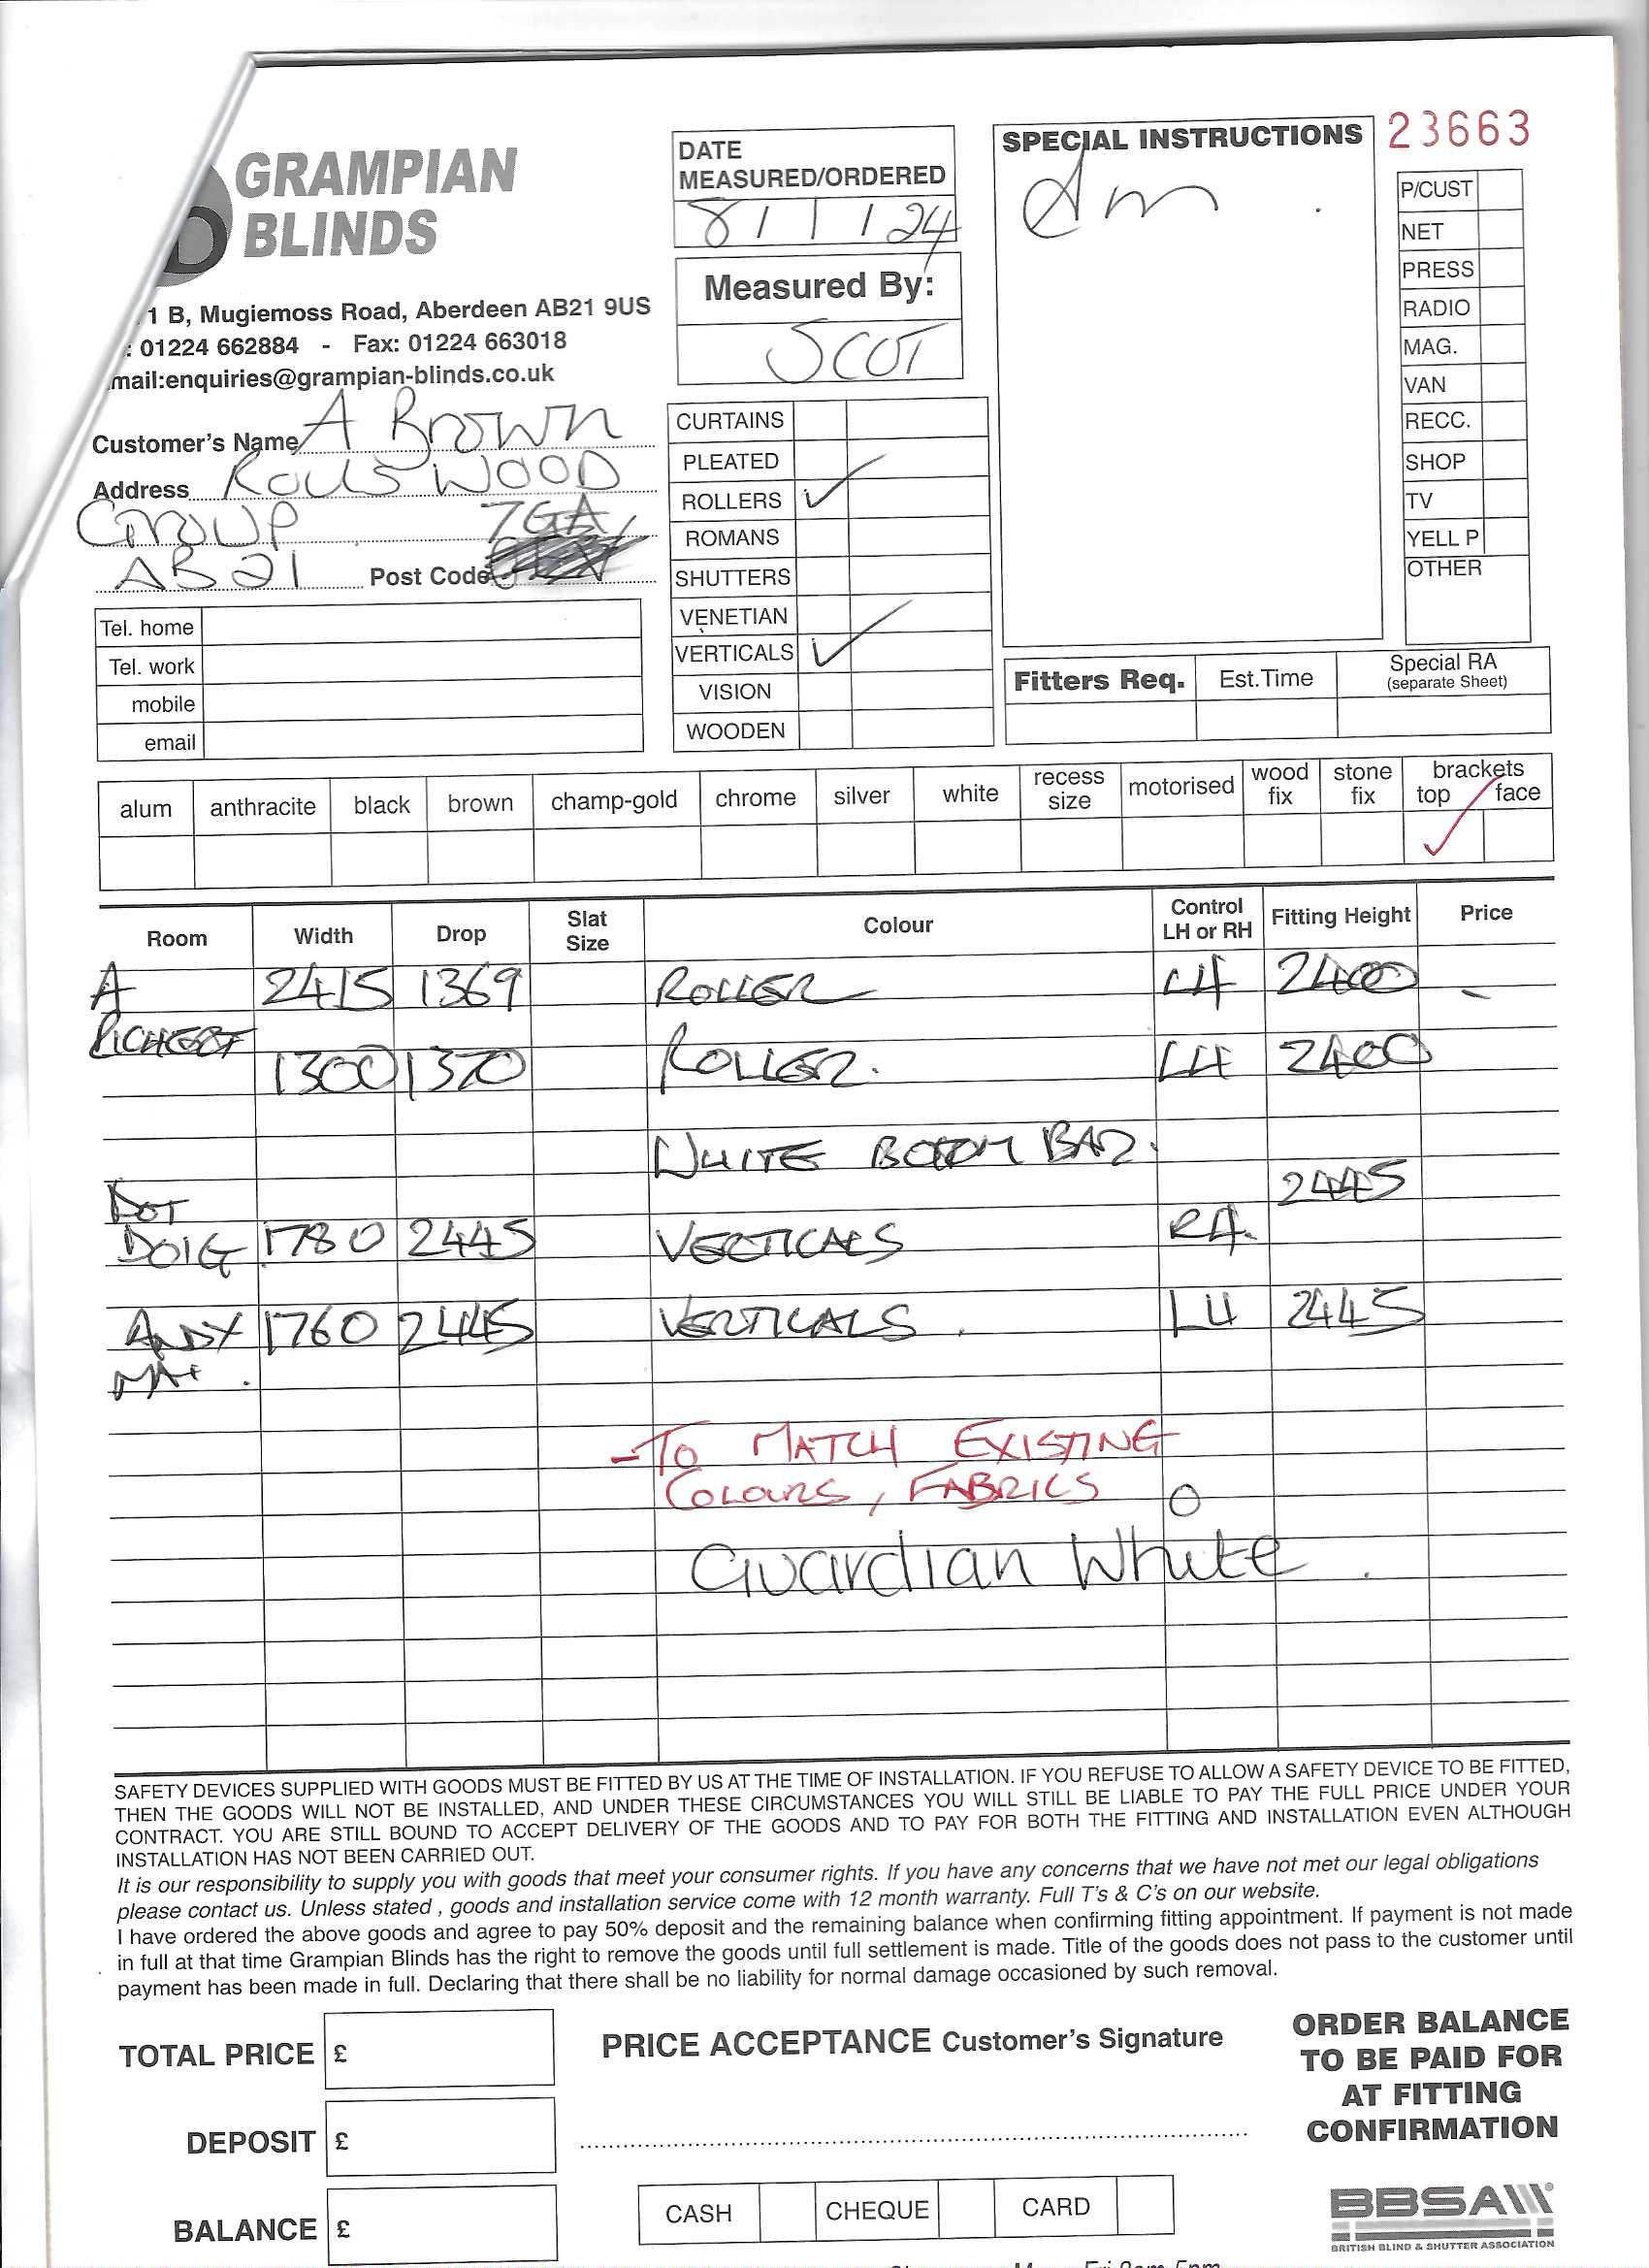 GRAMPIAN
BLINDS
1 B, Mugiemoss Road, Aberdeen AB21 9US
: 01224 662884 - Fax: 01224 663018
mail:enquiries@grampian-blinds.co.uk
Customer's Name A BROWN
Address ROLLS WOOD
GROUP 7GA
AB21 Post Code
Tel. home
Tel. work
mobile
email
DATE
MEASURED/ORDERED
8/1/24
Measured By:
SCOT
CURTAINS
PLEATED
ROLLERS ✓
ROMANS
SHUTTERS
VENETIAN
VERTICALS ✓
VISION
WOODEN
SPECIAL INSTRUCTIONS
23663
P/CUST
NET
PRESS
RADIO
MAG.
VAN
RECC.
SHOP
TV
YELL P
OTHER
Fitters Req. Est.Time Special RA
(separate Sheet)
alum anthracite black brown champ-gold chrome silver white recess size motorised wood fix stone fix brackets top face
✓
Room Width Drop Slat Size Colour Control LH or RH Fitting Height Price
A 2415 1369 ROLLER LH 2400 -
1300 1370 ROLLER. LH 2400
WHITE BOTTOM BAR.
DOT 2445
DOIG 1780 2445 VERTICALS RH.
ANDY 1760 2445 VERTICALS. LH 2445
- TO MATCH EXISTING
COLOURS, FABRICS
O
Guardian White.
SAFETY DEVICES SUPPLIED WITH GOODS MUST BE FITTED BY US AT THE TIME OF INSTALLATION. IF YOU REFUSE TO ALLOW A SAFETY DEVICE TO BE FITTED,
THEN THE GOODS WILL NOT BE INSTALLED, AND UNDER THESE CIRCUMSTANCES YOU WILL STILL BE LIABLE TO PAY THE FULL PRICE UNDER YOUR
CONTRACT. YOU ARE STILL BOUND TO ACCEPT DELIVERY OF THE GOODS AND TO PAY FOR BOTH THE FITTING AND INSTALLATION EVEN ALTHOUGH
INSTALLATION HAS NOT BEEN CARRIED OUT.
It is our responsibility to supply you with goods that meet your consumer rights. If you have any concerns that we have not met our legal obligations
please contact us. Unless stated , goods and installation service come with 12 month warranty. Full T's & C's on our website.
I have ordered the above goods and agree to pay 50% deposit and the remaining balance when confirming fitting appointment. If payment is not made
in full at that time Grampian Blinds has the right to remove the goods until full settlement is made. Title of the goods does not pass to the customer until
payment has been made in full. Declaring that there shall be no liability for normal damage occasioned by such removal.
TOTAL PRICE £
DEPOSIT £
BALANCE £
PRICE ACCEPTANCE Customer's Signature
CASH CHEQUE CARD
ORDER BALANCE
TO BE PAID FOR
AT FITTING
CONFIRMATION
BBSA
BRITISH BLIND & SHUTTER ASSOCIATION